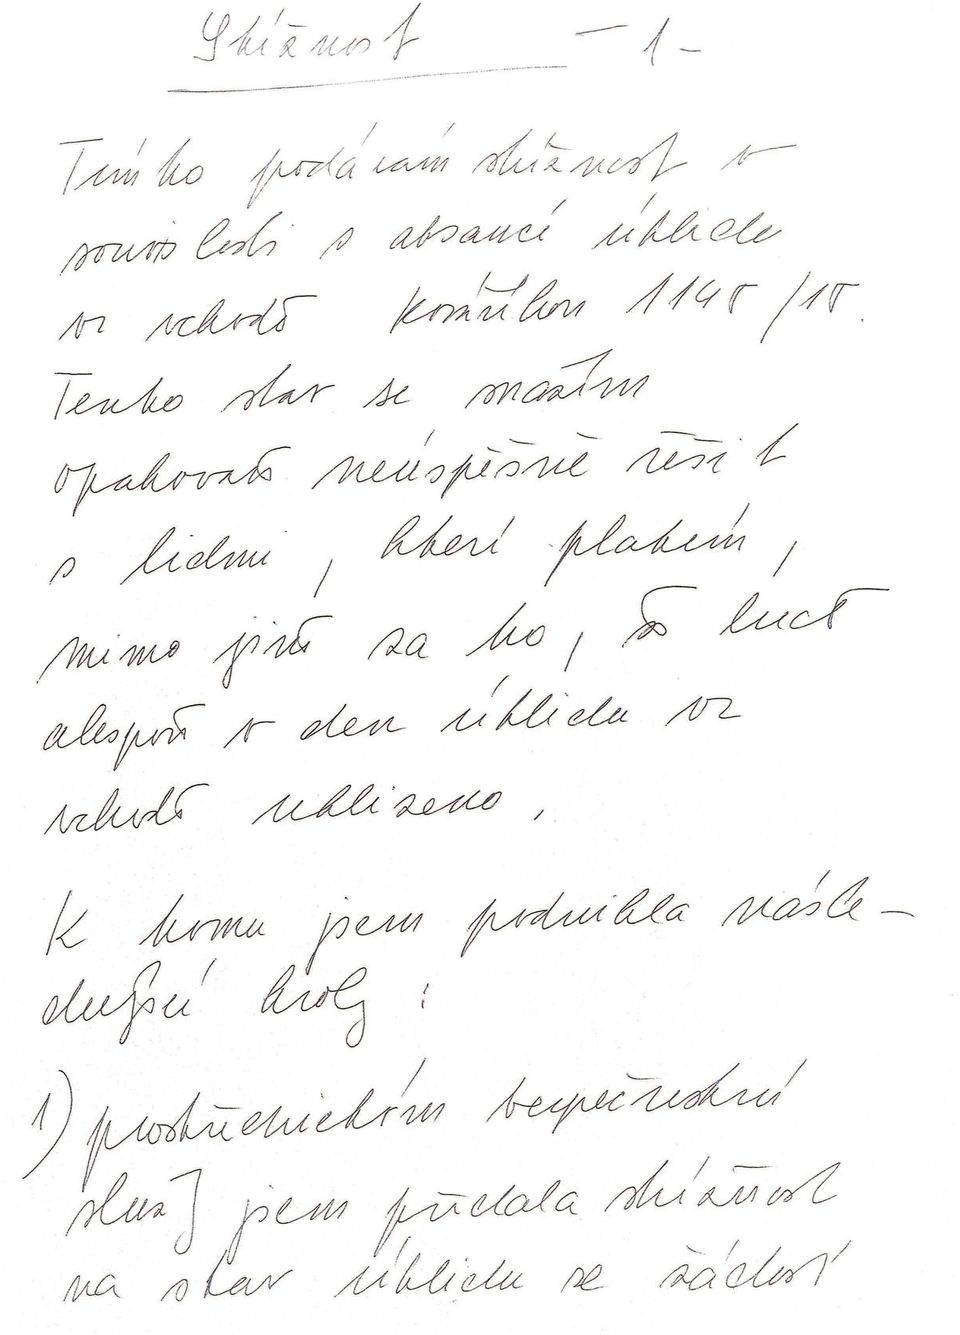 Stížnost - 1 -
Tímto podávám stížnost v
souvislosti s absencí úklidu
ve vchodě 1145/15.
Tento stav se snažím
opakovaně neúspěšně řešit
s lidmi, kteří platím,
mimo jiné za to, že bude
alespoň v den úklidu ve
vchodě uklizeno.
K tomu jsem podnikla násle-
dující kroky:
1) prostřednictvím bezpečnostní
služby jsem předala stížnost
na stav úklidu se žádostí